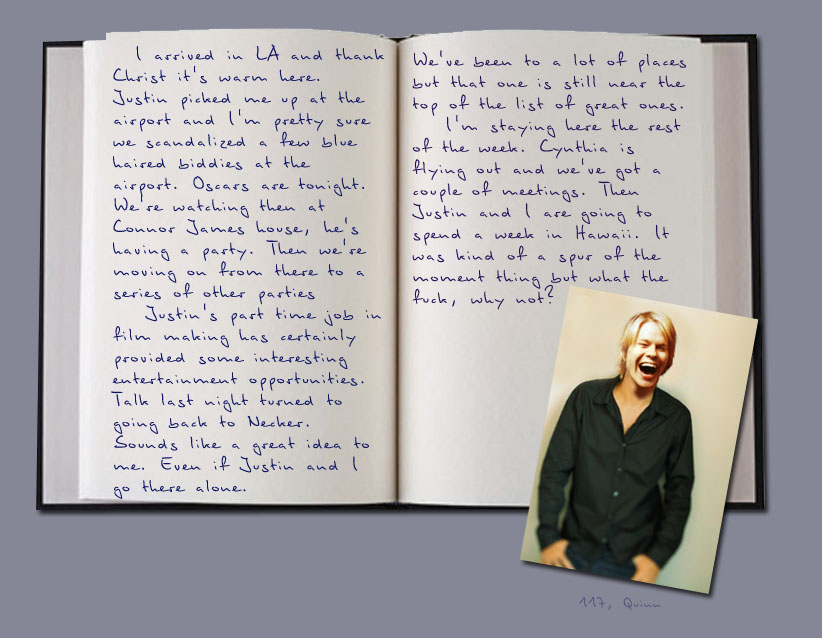 I arrived in LA and thank
Christ it's warm here.
Justin picked me up at the
airport and I'm pretty sure
we scandalized a few blue
haired biddies at the
airport. Oscars are tonight.
We're watching then at
Connor James house, he's
having a party. Then we're
moving on from there to a
series of other parties
Justin's part time job in
film making has certainly
provided some interesting
entertainment opportunities.
Talk last night turned to
going back to Necker.
Sounds like a great idea to
me. Even if Justin and I
go there alone.
We've been to a lot of places
but that one is still near the
top of the list of great ones.
I'm staying here the rest
of the week. Cynthia is
flying out and we've got a
couple of meetings. Then
Justin and I are going to
spend a week in Hawaii. It
was kind of a spur of the
moment thing but what the
fuck, why not?
117, Quinn